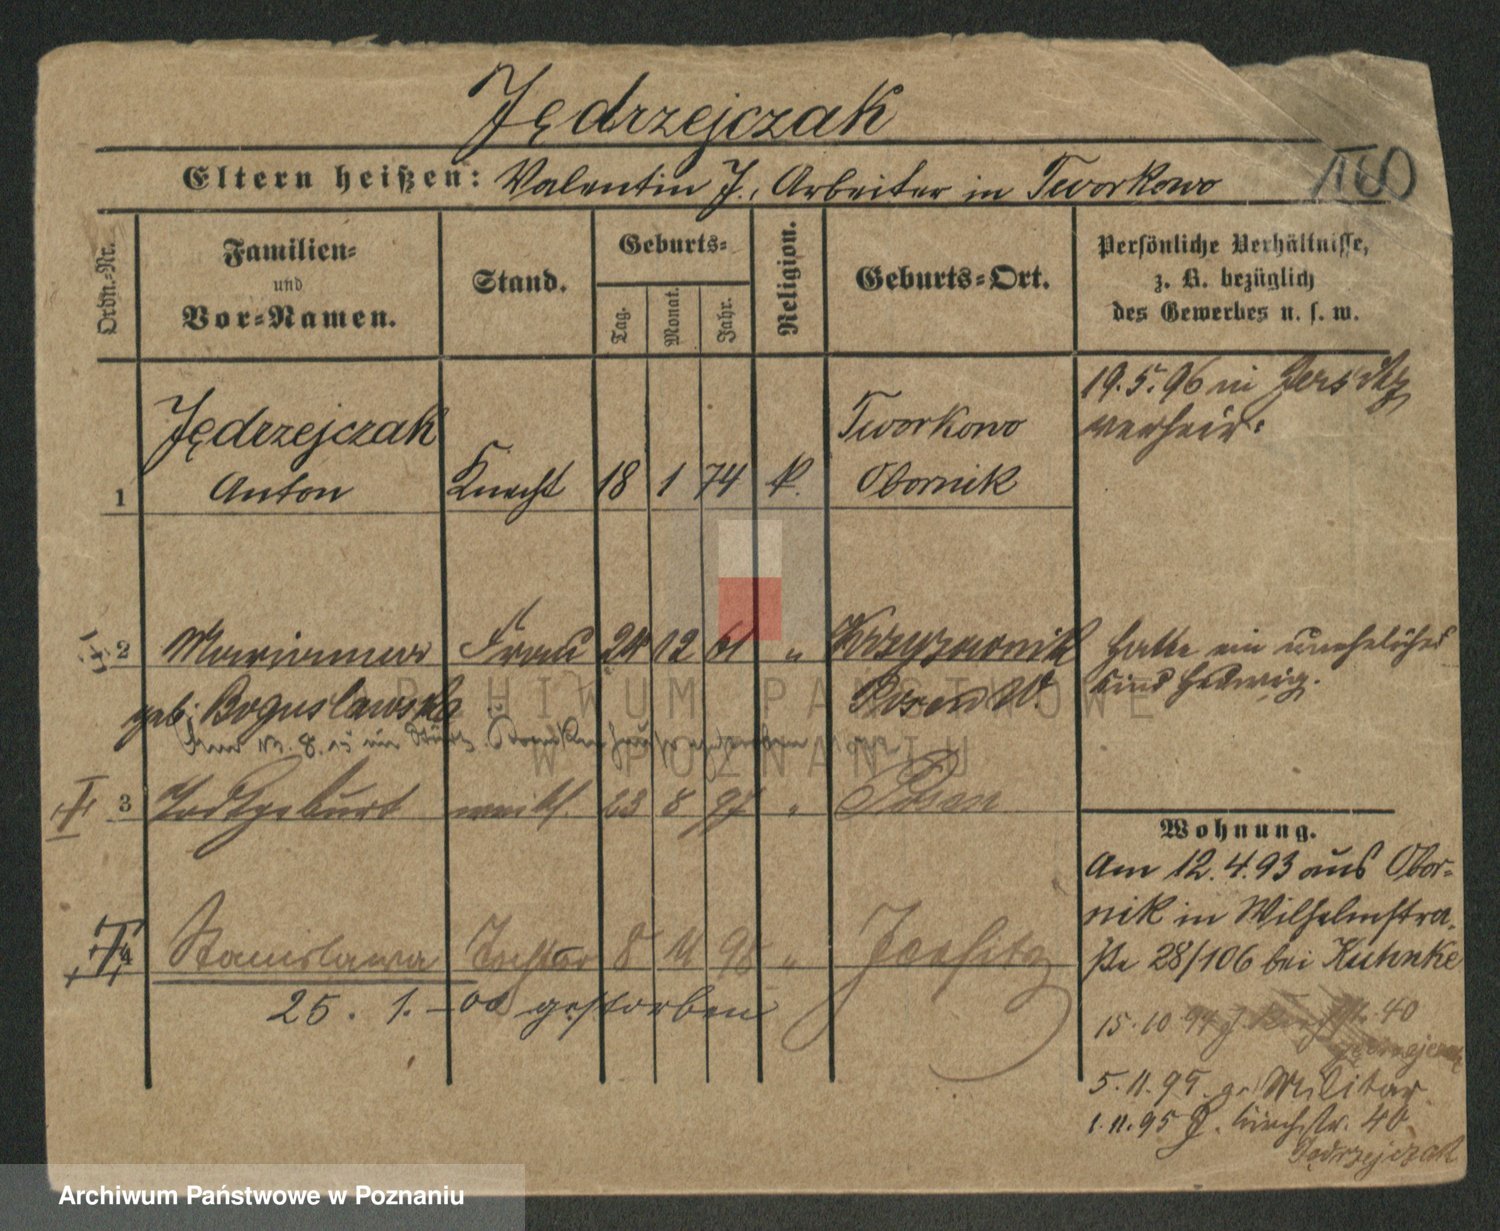 Jędrzejczak
Eltern heißen: Valentin J., Arbeiter in Tworkowo
Ordn.-Nr.
Familien-
und
Vor-Namen.
Stand.
Geburts-
Tag.
Monat.
Jahr.
Religion.
Geburts-Ort.
Persönliche Verhältnisse,
z. B. bezüglich
des Gewerbes u. s. w.
19.5.96 in Jersitz
verheir.
Jędrzejczak
Tworkowo
1 Anton Knecht 18 1 74 k. Obornik
2 Marianna Frau 24 12 61 " Krzyzownik
hatte ein uneheliches
Kind Hedwig.
geb. Boguslawska Posen W.
3 Todtgeburt weibl. 23 8 97 " Posen
Wohnung.
Am 12.4.93 aus Obor-
nik in Wilhelmstra-
ße 28/106 bei Kuhnke
4 Stanislawa Tochter 8 11 98 " Jersitz
25. 1. - 00 gestorben
15.10.94
40
5.11.95 Militär
1.11.95 J. Kirchstr. 40
Jędrzejczak
ARCHIWUM PAŃSTWOWE
W POZNANIU
Archiwum Państwowe w Poznaniu